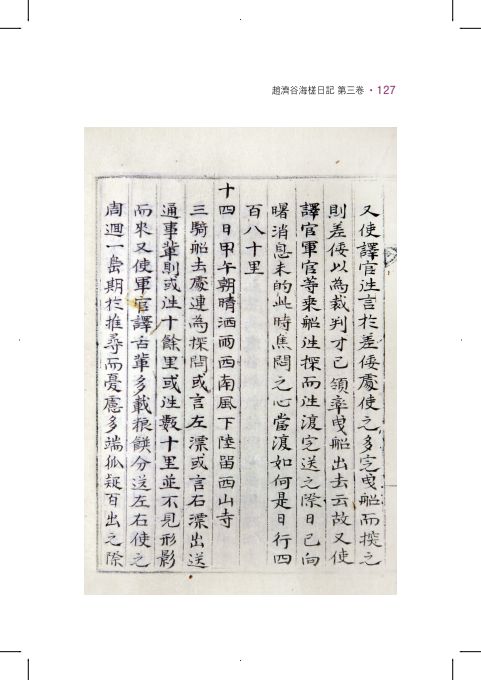 趙濟谷海槎日記 第三卷 • 127
又使譯官迬言於差倭處使之多定曳船而探之
則差倭以為裁判才已領率曳船出去云故又使
譯官軍官等乘船迬探而迬渡定送之際日已向
曙消息未的此時焦悶之心當渡如何是日行四
百八十里
十四日甲午朝晴洒雨西南風下陸留西山寺
三騎船去處連為探問或言左漂或言右漂出送
通事軰則或迬十餘里或迬數十里並不見形影
而來又使軍官譯舌軰多載粮饌分送左右使之
周迴一島期於推尋而憂慮多端狐疑百出之際